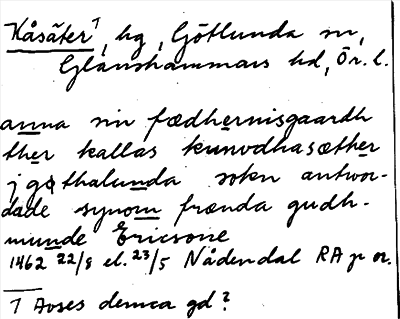 Kåsäter¹, hg, Götlunda sn,
Glanshammars hd, Ör. l.
anna sin fædhernisgaardh
ther kallas kunvdhasæther
j gøthalunda sokn antwor-
dade synom frænda gudh-
munde Ericsone
1462 22/8 el. 23/5 Nådendal RA p or.
1 Avses denna gd?